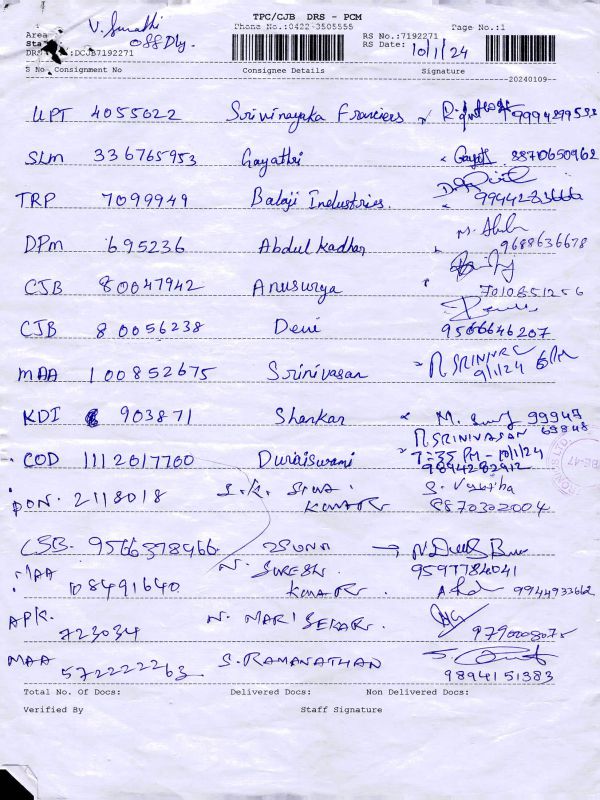 TPC/CJB DRS - PCM
Phone No.:0422-3505555 Page No.:1
Area
RS No.:7192271
RS Date: 10/1/24
DRS DCJB7192271
S No Consignment No Consignee Details Signature
20240109
UPT 4055022 Srivinayaka Franciers
SLM 336765953 Gayathri 8870650962
TRP 7099949 Balaji Industries. 9944283666
DPM 695236 Abdul Kadhar 9688636678
CJB 80047942 Anusurya 7010851256
CJB 80056238 Devi 9566646207
MAA 100852675 Srinivasan 9/1/24
KDI 903871 Shankar M. 99949 69848
R SRINIVASAN
COD 1112017700 Duraiswami 7:35 PM - 10/1/24
9894282912
PON. 2118018 S.K. Siva Kumar 8870302004
CSB. 9566378466 9597784041
MAA 108491640 N. SURESH KUMAR 9944933662
APK. 723034 N. MARISEKAR.
MAA 572222263 S. RAMANATHAN 9894151383
Total No. Of Docs: Delivered Docs: Non Delivered Docs:
Verified By Staff Signature